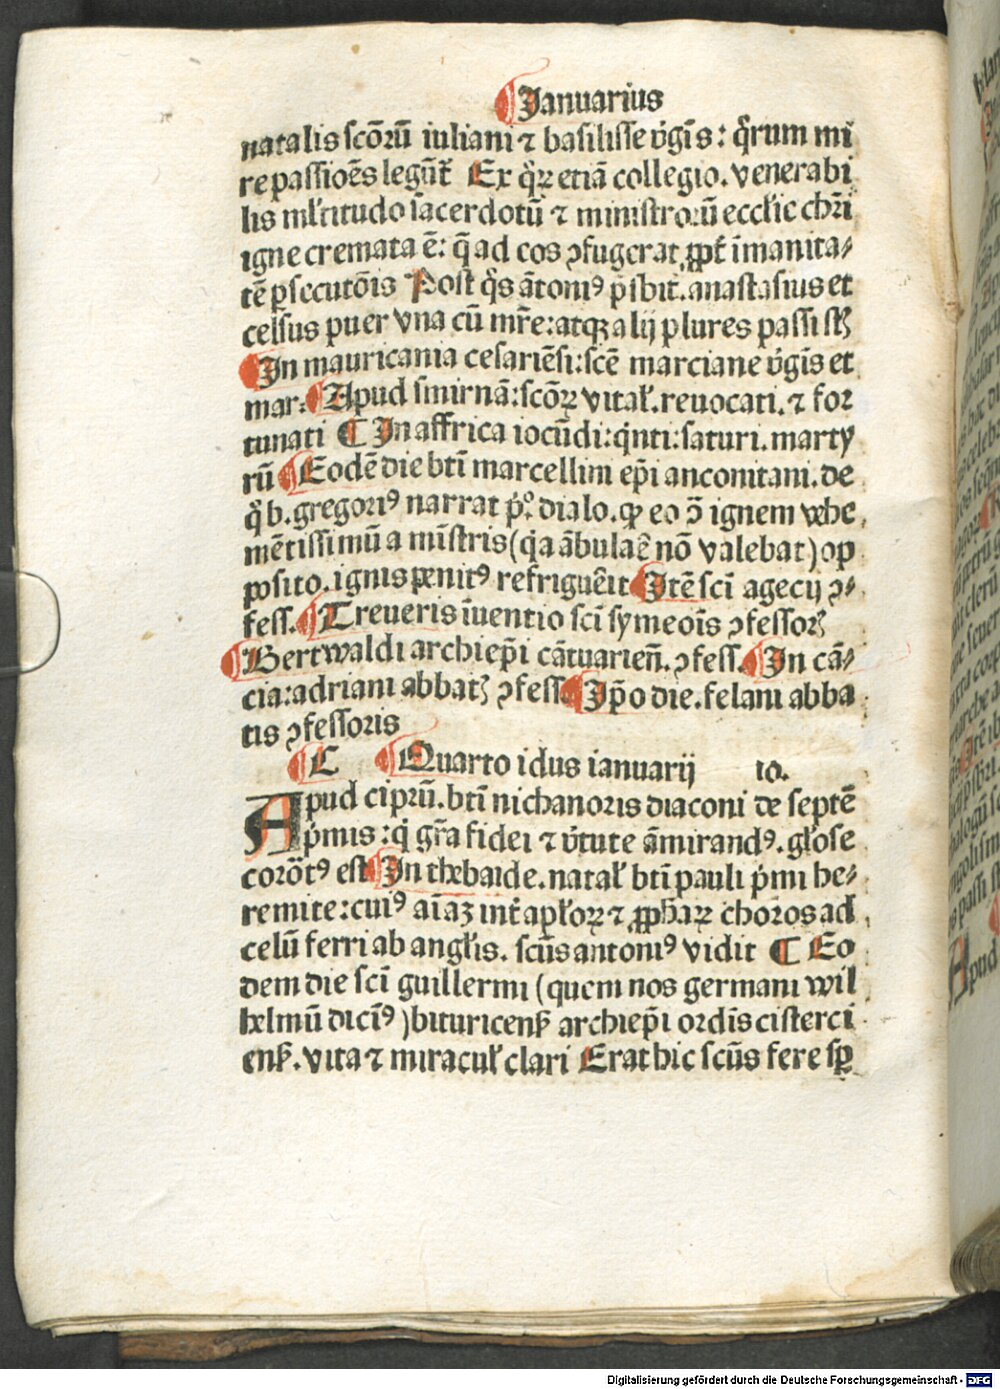 Januarius
natalis scōrū iuliani ⁊ basilisse v̓gīs: q̄rum mi
re passiōes legūt̄ Ex q̓ꝝ etiā collegio. venerabi
lis ml̓titudo sacerdotū ⁊ ministroꝝū eccl̓ie chr̄i
igne cremata ē: q̄ ad eos ꝯfugerat, ꝓpt̄ īmanita⸗
tē ꝑsecutōis Post q̓s ātoniꝰ p̄sbit. anastasius et
celsus puer vna cū mr̄e: atqꝫ alij plures passi st̄
In mauricania cesariēsi: scē marciane v̓gīs et
mar. Apud smirnā: scōꝝ vital̓. reuocati. ⁊ for
tunati ¶ In affrica iocūdi: q̓nti: saturi. marty
rū Eodē die btī marcellini ep̄i anconitani. de
q̊ b. gregoriꝰ narrat p̊. dialo. ꝙ eo ꝯ̄ ignem vehe
mētissimū a mīstris (q̓a ābulaē nō valebat) op
posito. ignis penitꝰ refriguēit Itē scī agecij ꝯ⸗
fess. Treueris īuentio scī symeōis ꝯfessoꝝ
Bertwaldi archiep̄i cātuarieñ. ꝯfess. In cā⸗
cia: adriani abbatꝭ ꝯfess. Ip̄o die. felani abba
tis ꝯfessoris
C Quarto idus ianuarij 10.
Apud ciprū. btī nichanoris diaconi de septē
p̓mis: q̓ gr̄a fidei ⁊ v̓tute āmirandꝰ. gl̓ose
corōtꝰ est In thebaide. natal̓ btī pauli p̓mi he⸗
remite: cuiꝰ aīaꝫ int̄ apl̓oꝝ ⁊ ꝓphaꝝ choros ad
celū ferri ab angl̓is. scūs antoniꝰ vidit ¶ Eo
dem die scī guillermi (quem nos germani wil
helmū dicīꝰ) bituricenß archiep̄i ordīs cisterci
enß. vita ⁊ miracul̓ clari Erat hic scūs fere sꝑ
Digitalisierung gefördert durch die Deutsche Forschungsgemeinschaft - DFG